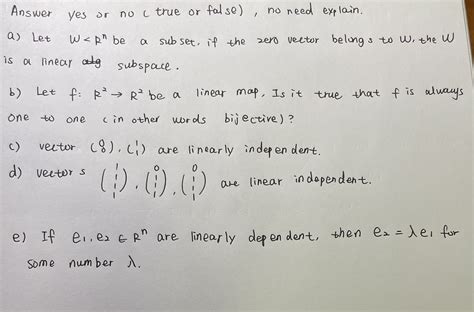 Answer yes or no ( true or false ) , no need explain.
a) Let W < Rⁿ be a subset, if the zero vector belongs to W, the W
is a linear subspace.
b) Let f: R² → R² be a linear map. Is it true that f is always
one to one ( in other words bijective ) ?
c) vector (0 0), (1 1) are linearly independent.
d) vectors (1 1 1 1), (0 1 1 1), (0 0 1 1) are linear independent.
e) If e₁, e₂ ∈ Rⁿ are linearly dependent, then e₂ = λe₁ for
some number λ.